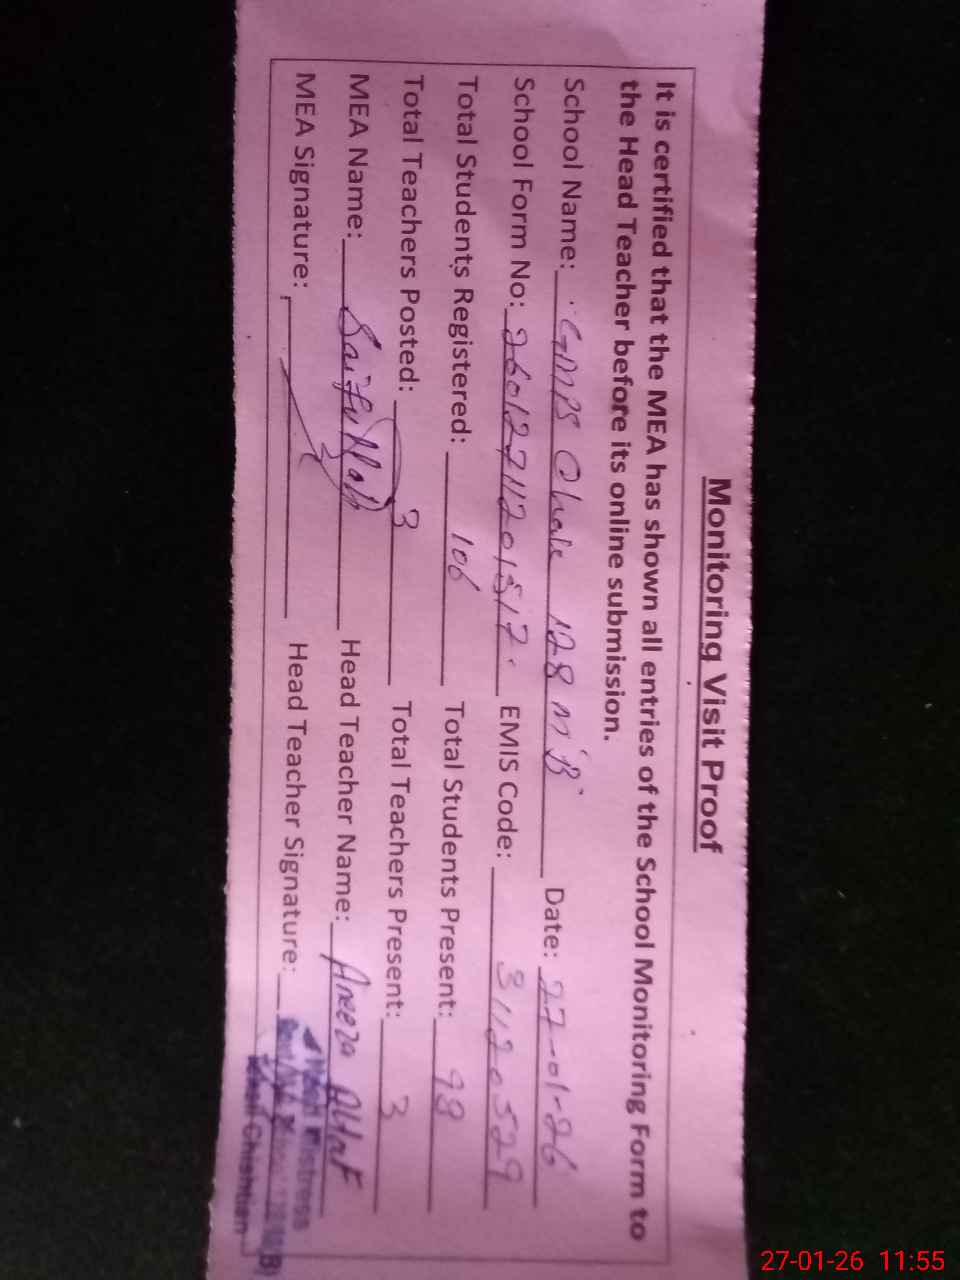 Monitoring Visit Proof
It is certified that the MEA has shown all entries of the School Monitoring Form to
the Head Teacher before its online submission.
School Name: GMPS Chak 128 M B Date: 27-01-26
School Form No: 26012711201517 EMIS Code: 31120529
Total Students Registered: 106 Total Students Present: 98
Total Teachers Posted: 3 Total Teachers Present: 3
MEA Name: Saifullah Head Teacher Name: Aneeza Altaf
MEA Signature: Head Teacher Signature:
Head Mistress
Chishtian
27-01-26 11:55